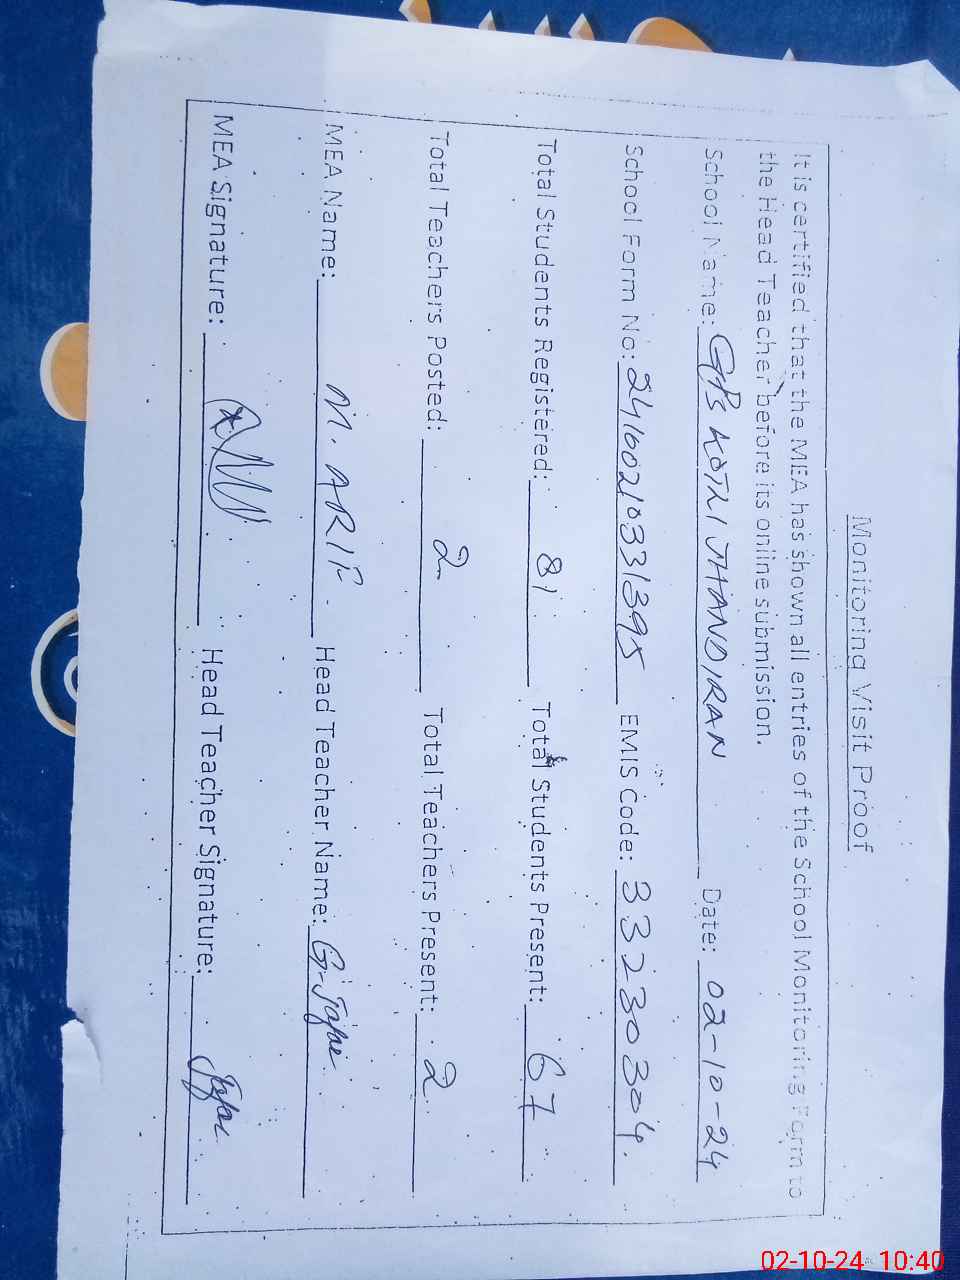 Monitoring Visit Proof
It is certified that the MEA has shown all entries of the School Monitoring Form to
the Head Teacher before its online submission.
School Name: GPS KOTLI JHANDIRAN Date: 02-10-24
School Form No: 24100210331395 EMIS Code: 33230304.
Total Students Registered: 81 Total Students Present: 67
Total Teachers Posted: 2 Total Teachers Present: 2
MEA Name: M. ARIF. Head Teacher Name: G-
MEA Signature: Head Teacher Signature:
02-10-24 10:40